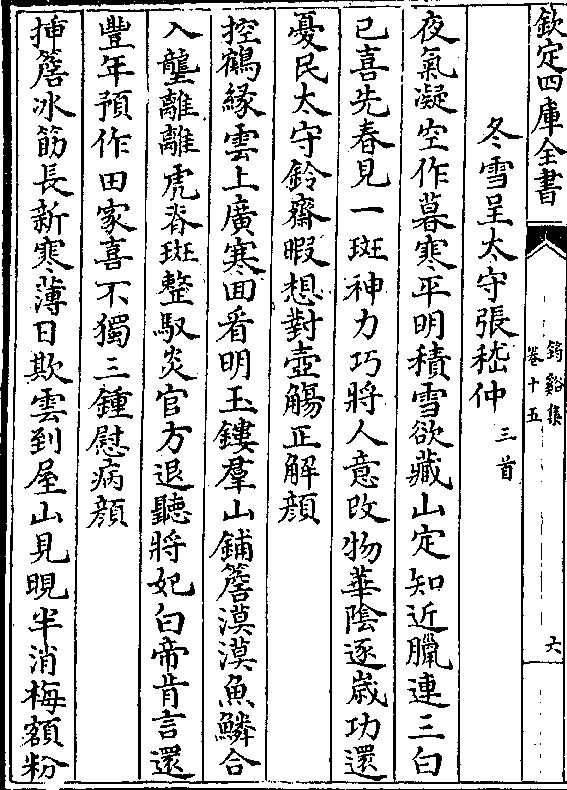 欽定四庫全書
筠谿集
卷十五
六
冬雪呈太守張嵇仲三首
夜氣凝空作暮寒平明積雪欲藏山定知近臘連三白
已喜先春見一斑神力巧將人意改物華陰逐歲功還
憂民太守鈴齋暇想對壺觴正解顔
控鶴緣雲上廣寒囬看明玉鏤羣山鋪簷漠漠魚鱗合
入壟離離虎脊斑整馭炎官方退聽將妃白帝肯言還
豐年預作田家喜不獨三鍾慰病顔
揷簷冰筋長新寒薄日欺雲到屋山見晛半消梅額粉